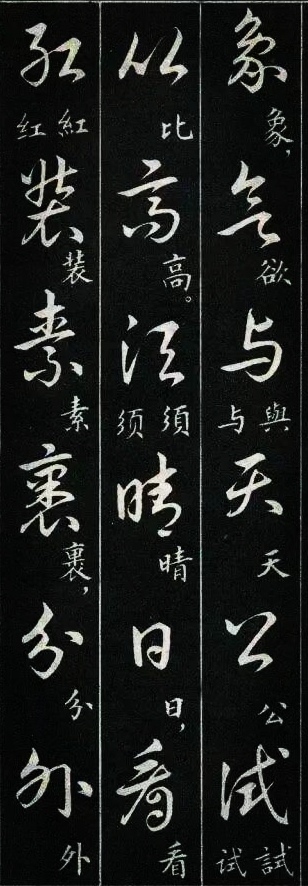 象欲与天公试
象，欲與与天公試试
以高须晴日看
比高。須须晴日，看
红装素裹分外
紅红装素裹，分外